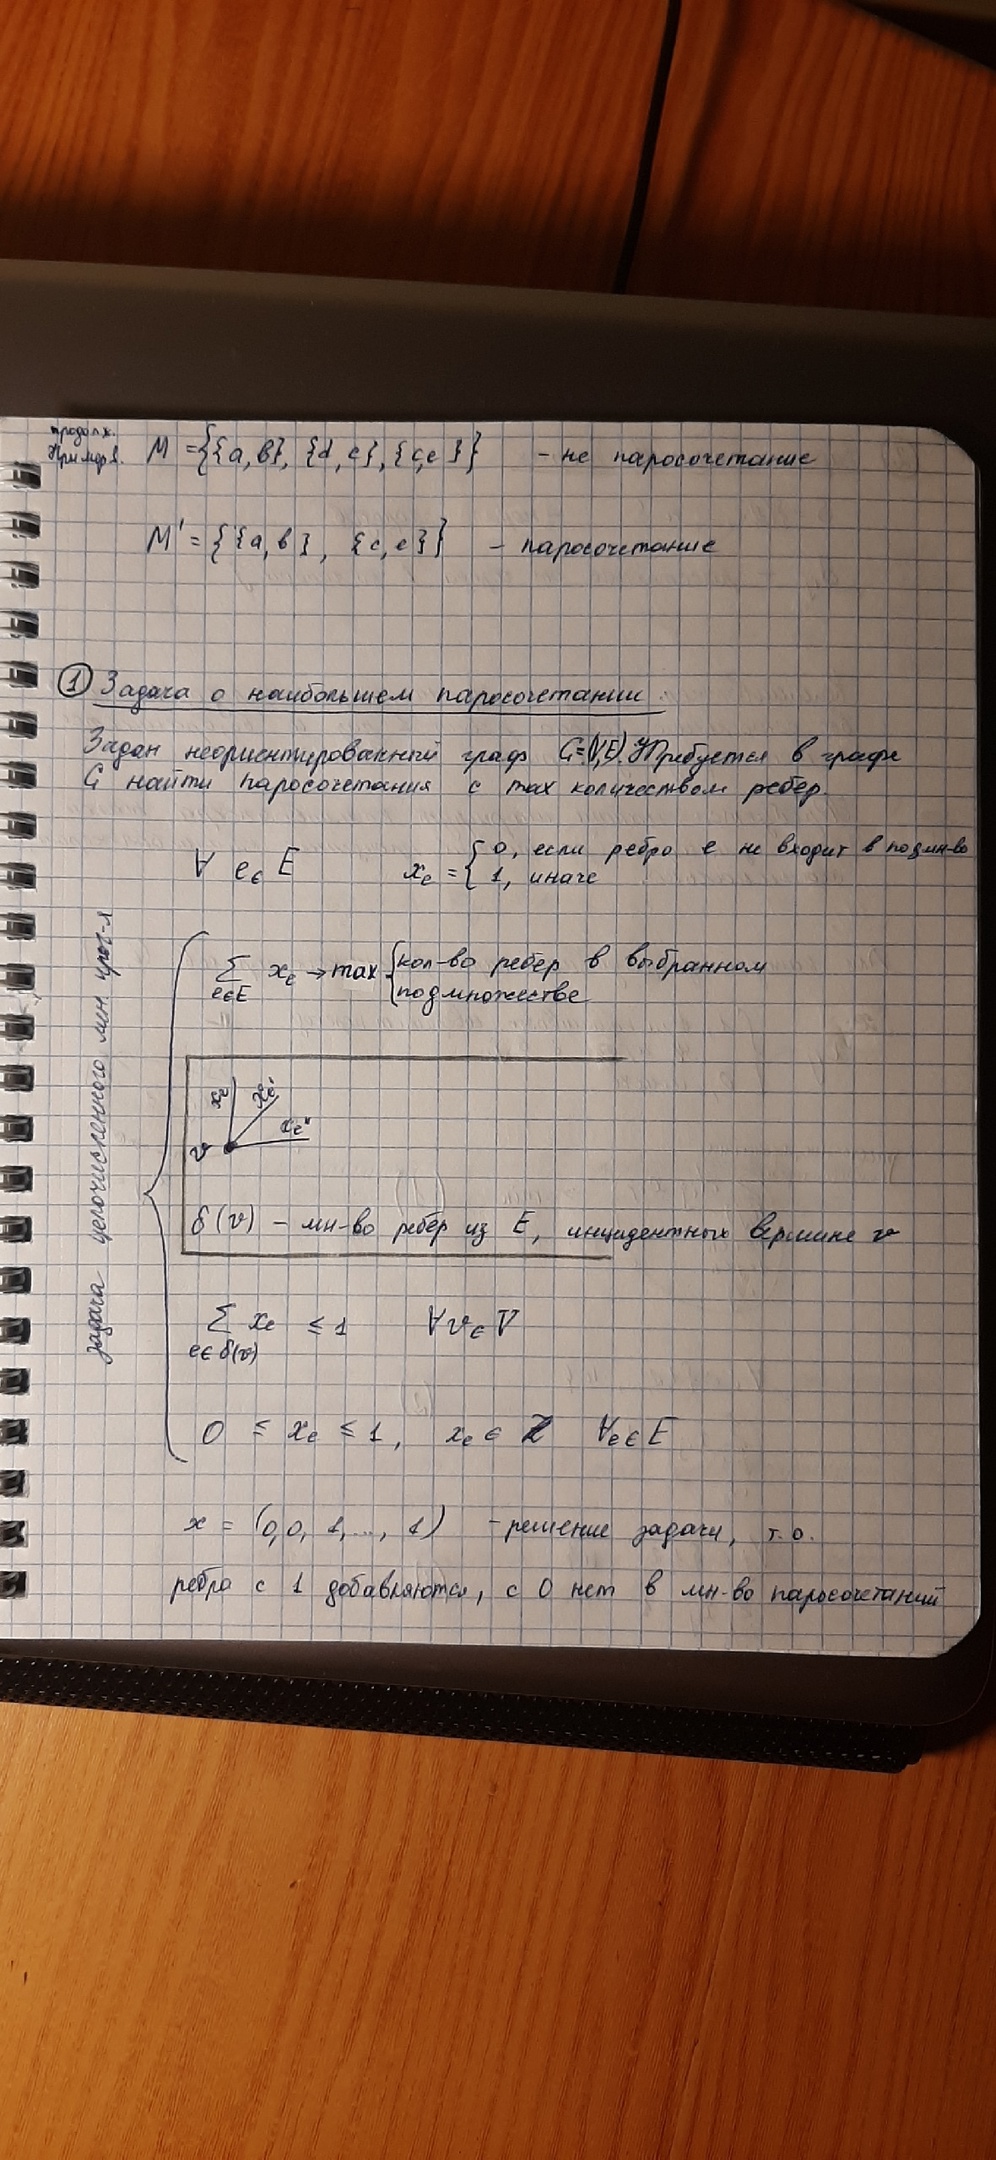 продолж.
Пример 1. M = {{a,b}, {d,c}, {c,e}} - не паросочетание
M' = {{a,b}, {c,e}} - паросочетание
① Задача о наибольшем паросочетании:
Задан неориентированный граф G=(V,E). Требуется в графе
G найти паросочетания с max количеством ребер.
∀ e∈E x_e = { 0, если ребро e не входит в подмн-во
1, иначе
∑ x_e → max { кол-во ребер в выбранном
e∈E подмножестве
x_e x_e' x_e''
v
δ(v) - мн-во ребер из E, инцидентных вершине v
∑ x_e ≤ 1 ∀v∈V
e∈δ(v)
0 ≤ x_e ≤ 1, x_e ∈ Z ∀e∈E
задача целочисленного лин прог-я
x = (0,0, 1, ..., 1) - решение задачи, т.о.
ребра с 1 добавляются, с 0 нет в мн-во паросочетаний